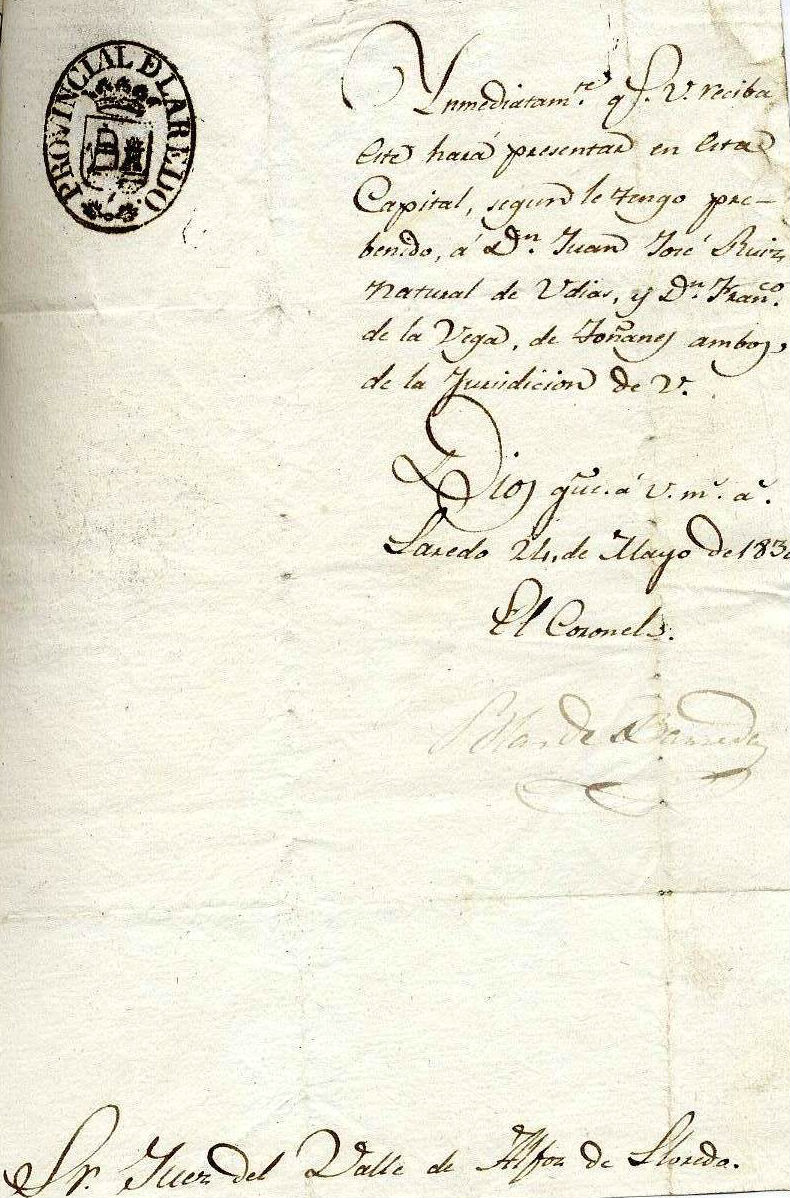 PROVINCIAL D LAREDO
Ynmediatam.te q.e V. reciba
este hará presentar en esta
Capital, segun le tengo pre-
benido, á D.n Juan José Ruiz,
natural de Udias, y D.n Fran.co
de la Vega, de Toñanes ambos,
de la Jurisdicion de V.
Dios gue. á V. m.s a.s
Laredo 24, de Mayo de 183
El Coronel
Blas de Barreda
Sr. Juez del Valle de Alfoz de Lloredo.